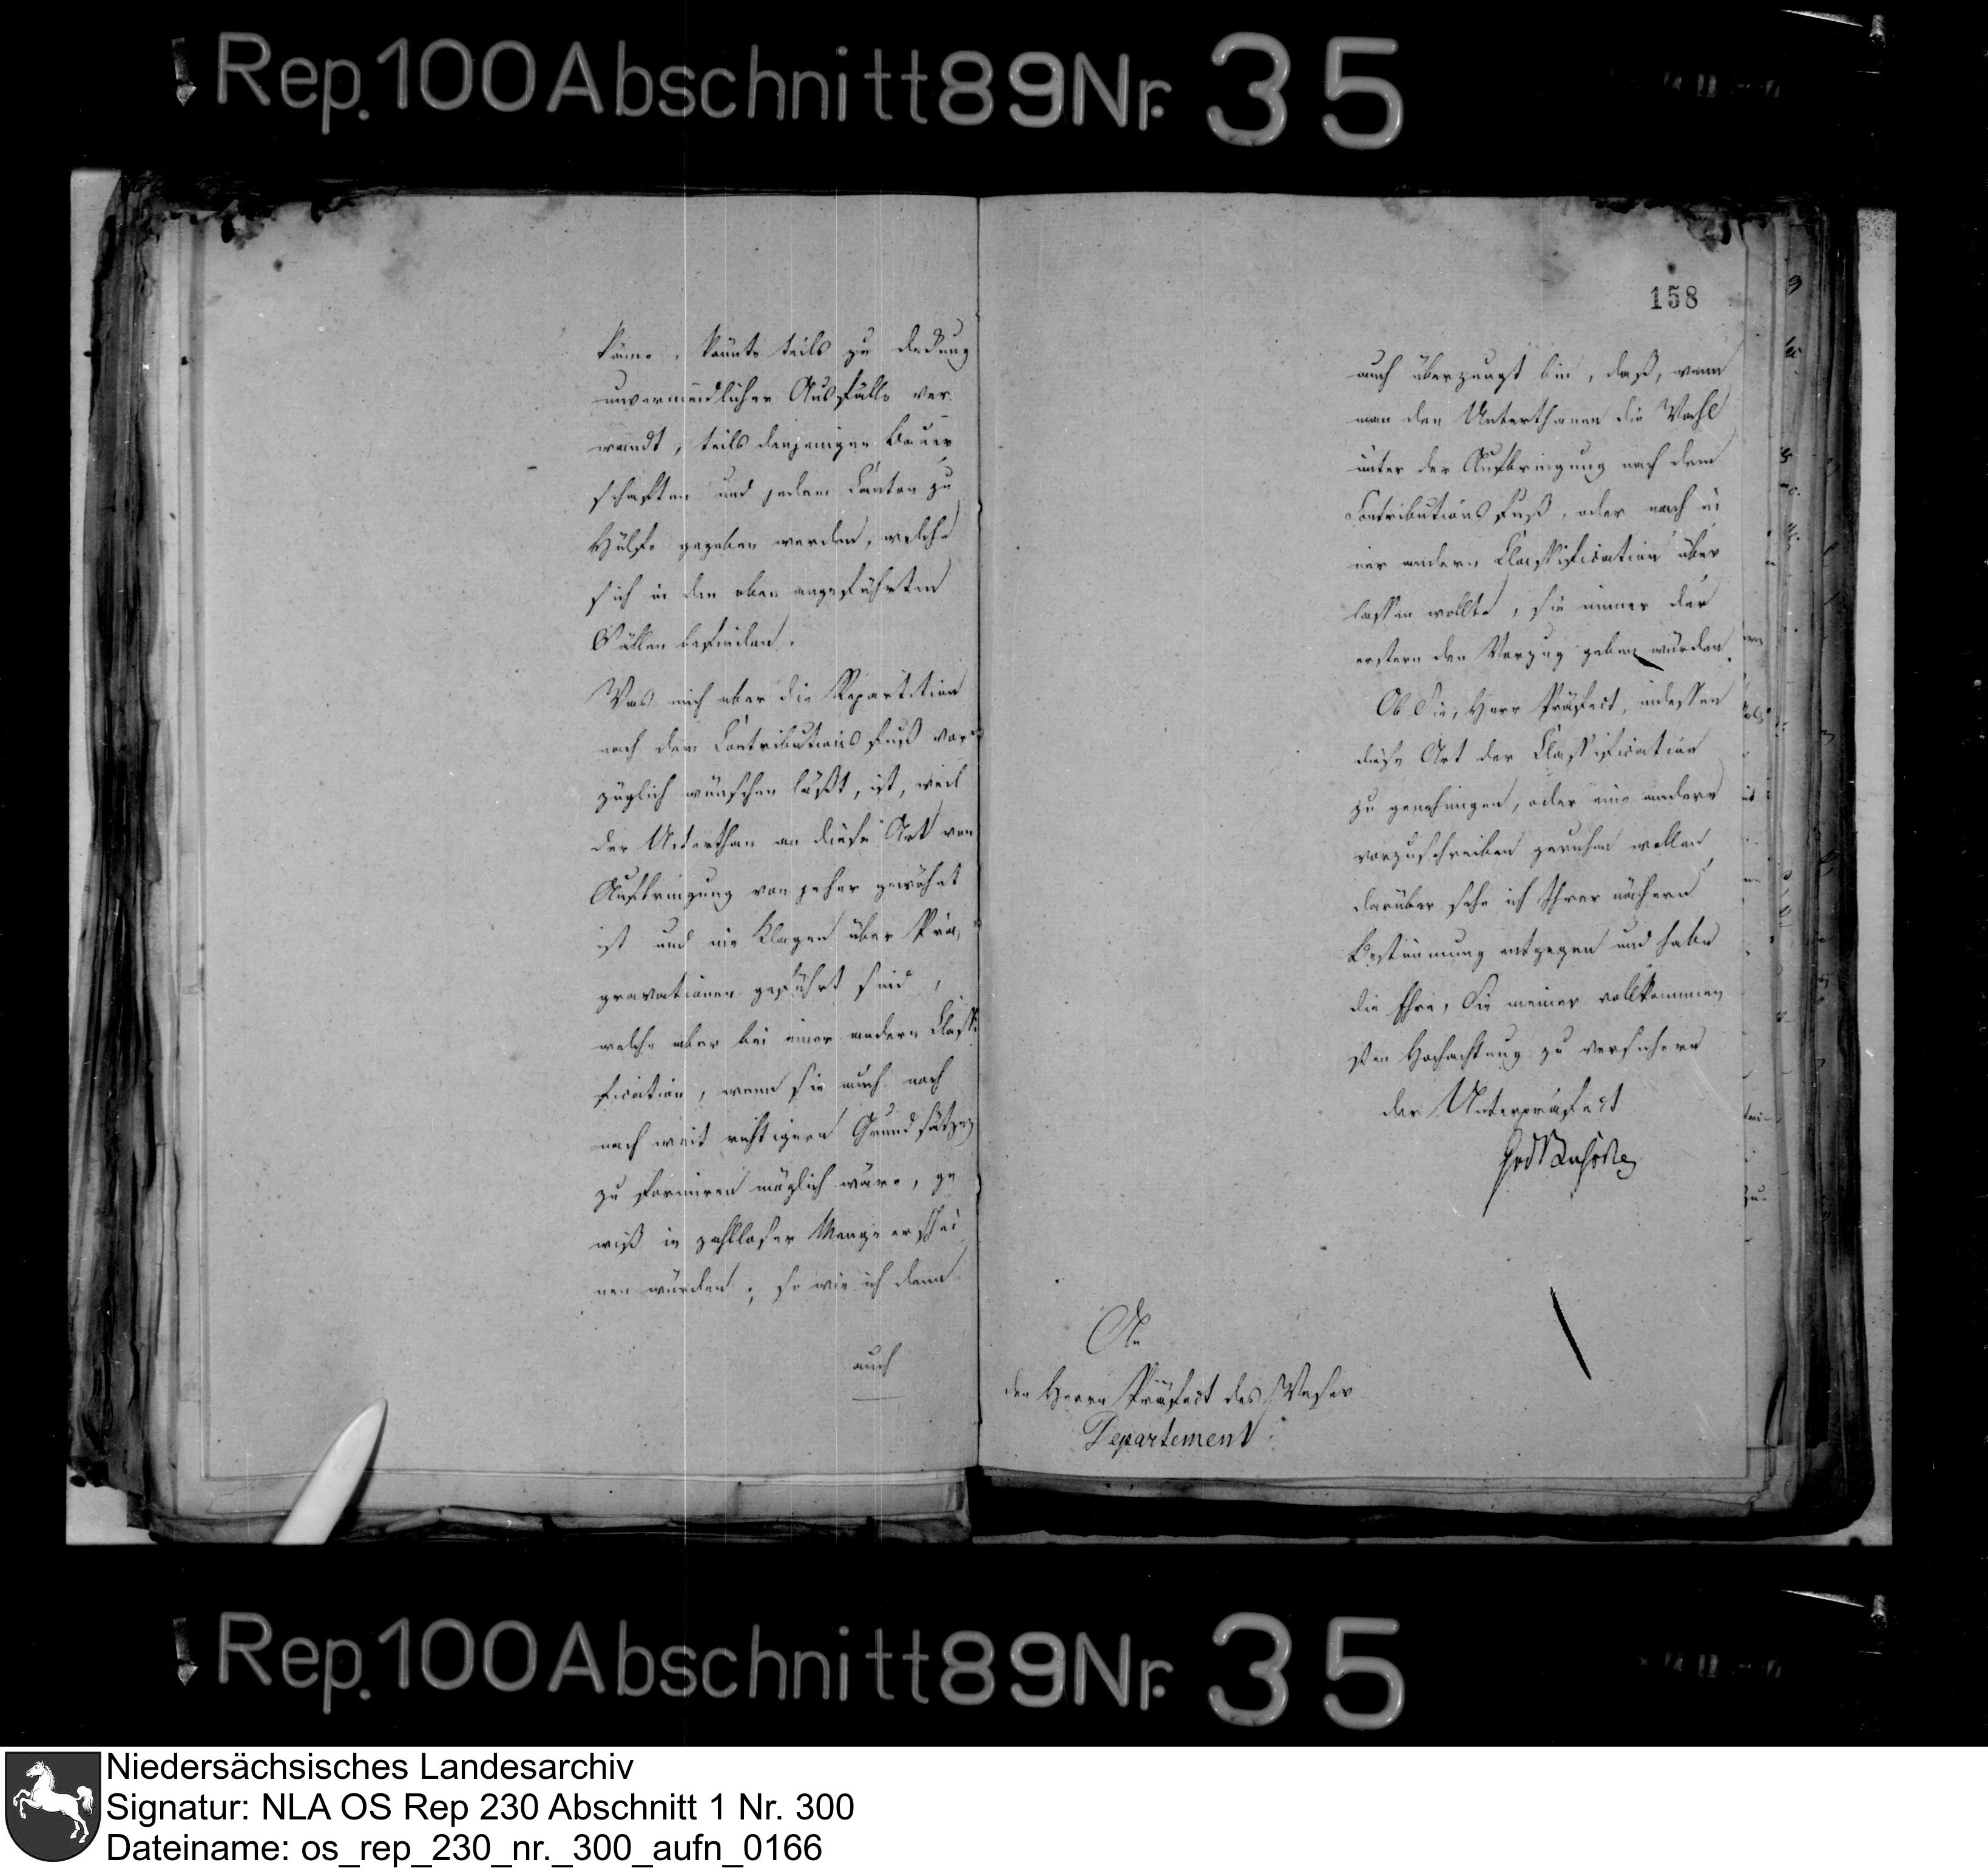 Rep. 100 Abschnitt 89 Nr. 35
käme, könnte teils zu Deckung
unvermeidlicher Ausfälle ver
wandt, teils denjenigen Bauer
schaften und jedem Canton zu
Hülfe gegeben werden, welche
sich in den oben angeführten
Fällen befinden.
Was mich aber die Repartition
nach dem Contributions Fuß vor
züglich wünschen läßt, ist, weil
der Unterthan an diese Art von
Aufbringung von jeher gewöhnt
ist und nie Klagen über Prä,
gravationen geführt sind,
welche aber bei einer andern Classi
fication, wenn sie auch noch
nach weit richtigern Grundsätzen
zu formiren möglich wäre, ge
wiß in zahlloser Menge erschei
nen würden; so wie ich denn
auch
158
auch überzeugt bin, daß, wenn
man den Unterthanen die Wahl
unter der Aufbringung nach dem
Contributions Fuß, oder nach ei
ner andern Classification über
lassen wollte, sie immer der
erstern den Vorzug geben würden.
Ob Sie, Herr Präfect, indessen
diese Art der Classification
zu genehmigen, oder eine andere
vorzuschreiben geruhen wollen,
darüber sehe ich Ihrer nähern
Bestimmung entgegen und habe
die Ehre, Sie meiner vollkommen
sten Hochachtung zu versichern
der Unterpräfect
An
den Herrn Präfect des Weser
Departement
Rep. 100 Abschnitt 89 Nr. 35
Niedersächsisches Landesarchiv
Signatur: NLA OS Rep 230 Abschnitt 1 Nr. 300
Dateiname: os_rep_230_nr._300_aufn_0166